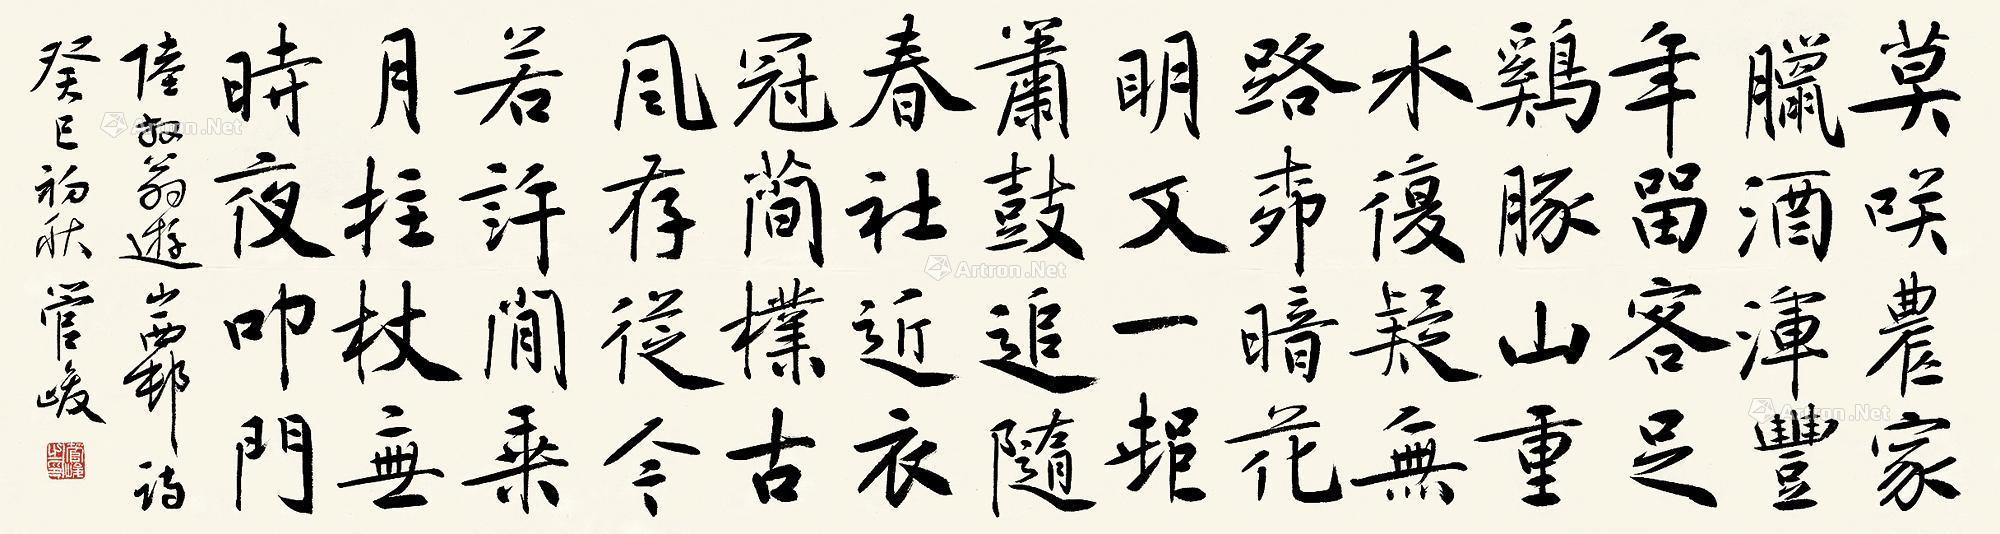 莫咲農家
臘酒渾豐
年留客足
鷄豚山重
水復疑無
路栁暗花
明又一邨
簫鼓追隨
春社近衣
冠簡樸古
風存從今
若許閒乘
月拄杖無
時夜叩門
陸放翁遊山西邨詩
癸巳初秋管峻
Artron.Net
Artron.Net
Artron.Net